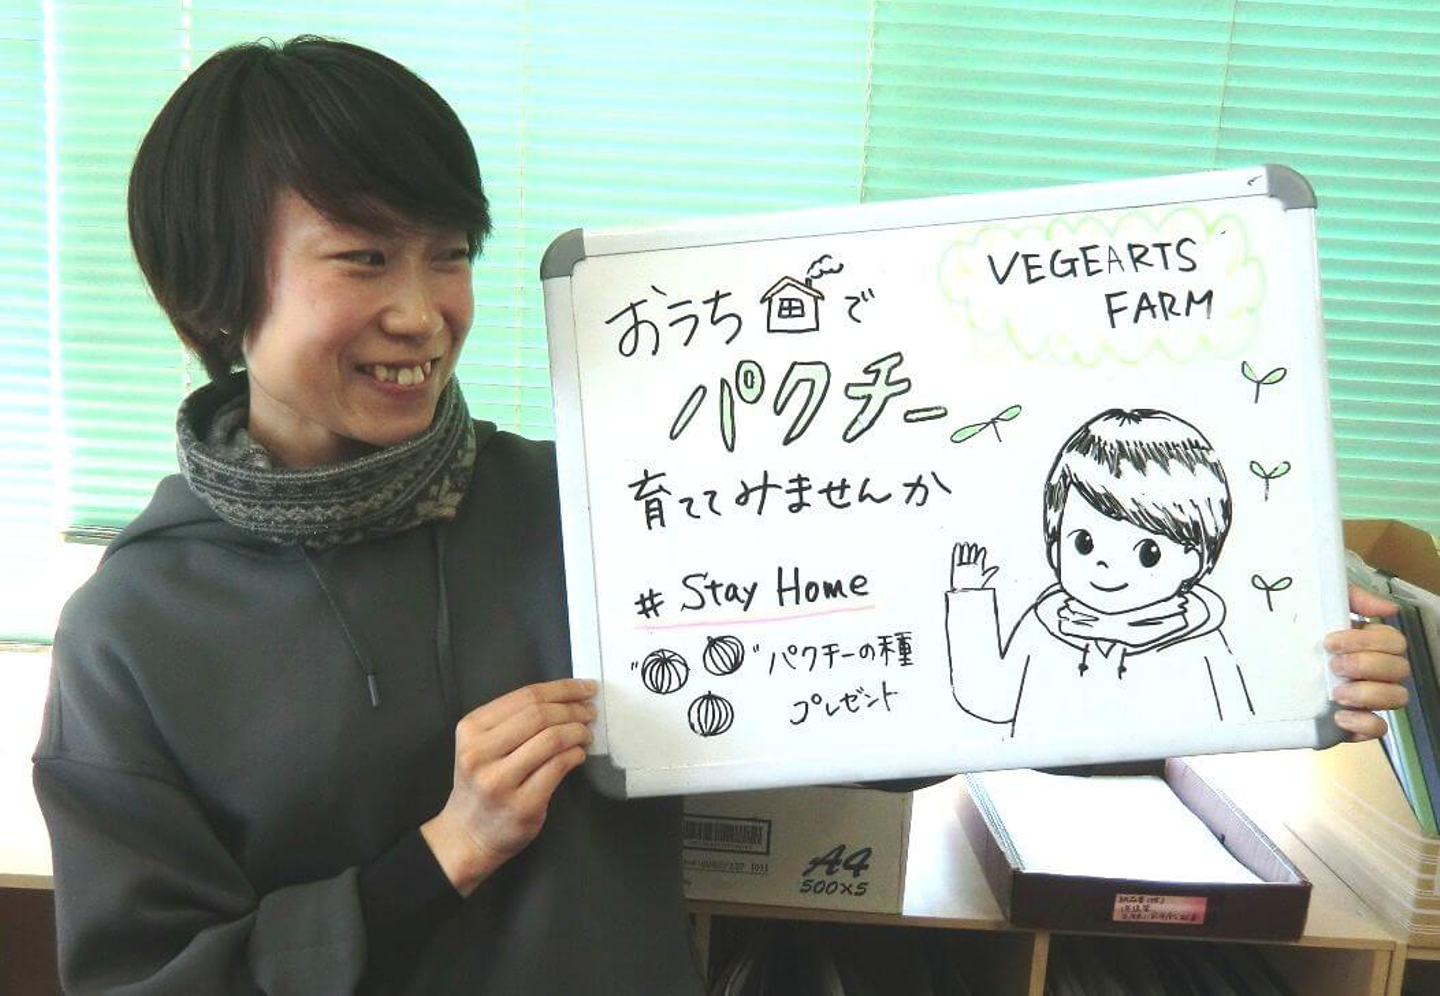 VEGEARTS
FARM
おうちで
パクチー
育ててみませんか
# Stay Home
"パクチーの種
プレゼント
A4
500×5